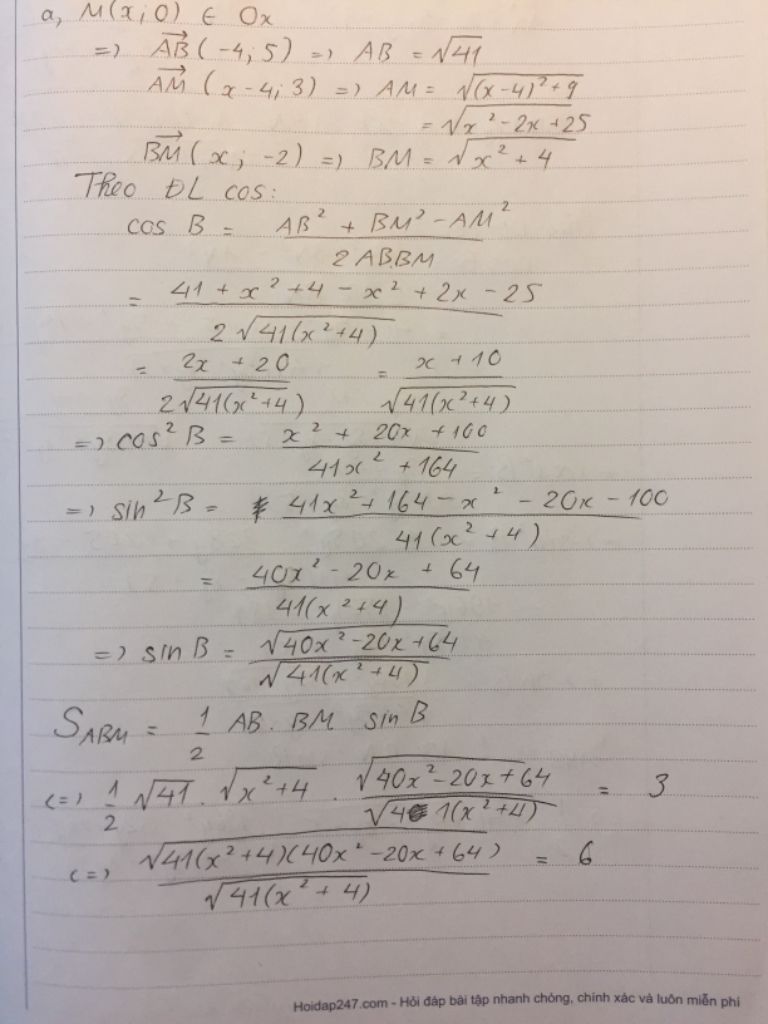 a, M(x; 0) ∈ Ox
=> AB→ (-4; 5) => AB = √41
AM→ (x-4; 3) => AM = √((x-4)² + 9)
= √(x² - 2x + 25)
BM→ (x; -2) => BM = √(x² + 4)
Theo ĐL cos:
cos B = (AB² + BM² - AM²) / (2AB.BM)
= (41 + x² + 4 - x² + 2x - 25) / (2√(41(x²+4)))
= (2x + 20) / (2√(41(x²+4))) = (x + 10) / √(41(x²+4))
=> cos² B = (x² + 20x + 100) / (41x² + 164)
=> sin² B = (41x² + 164 - x² - 20x - 100) / (41(x² + 4))
= (40x² - 20x + 64) / (41(x² + 4))
=> sin B = √(40x² - 20x + 64) / √(41(x² + 4))
S_ABM = 1/2 AB. BM sin B
<=> 1/2 √41 . √(x² + 4) . √(40x² - 20x + 64) / √(41(x² + 4)) = 3
<=> √(41(x² + 4)(40x² - 20x + 64)) / √(41(x² + 4)) = 6
Hoidap247.com - Hỏi đáp bài tập nhanh chóng, chính xác và luôn miễn phí